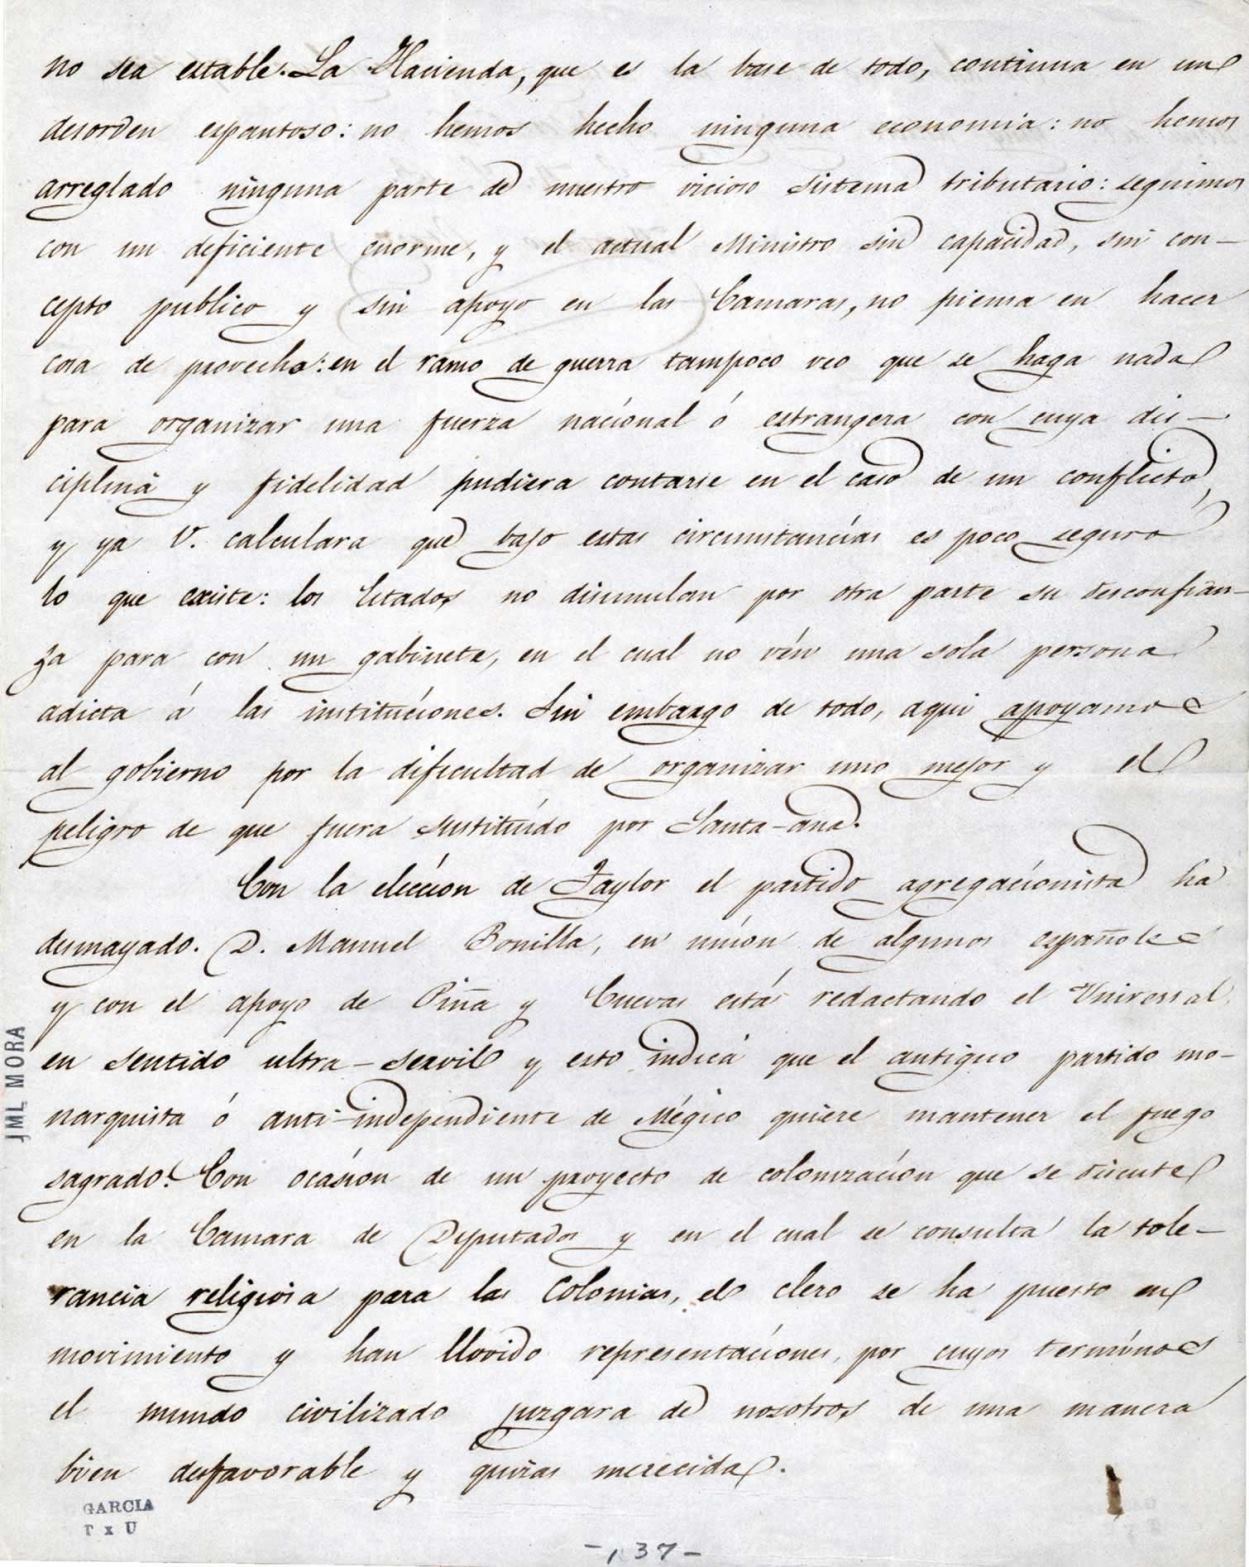 no sea estable. La Hacienda, que es la base de todo, continua en un
desorden espantoso: no hemos hecho ninguna economia: no hemos
arreglado ninguna parte de nuestro vicioso sistema tributario: seguimos
con un deficiente enorme, y el actual Ministro sin capacidad, sin con-
cepto publico y sin apoyo en las Camaras, no piensa en hacer
cosa de provecho: en el ramo de guerra tampoco veo que se haga nada
para organizar una fuerza nacional ó estrangera con cuya dis-
ciplina y fidelidad pudiera contarse en el caso de un conflicto,
y ya V. calculara que bajo estas circunstancias es poco seguro
lo que existe: los Estados no disimulan por otra parte su desconfian-
za para con un gabinete, en el cual no vén una sola persona
adicta á las instituciones. Sin embargo de todo, aqui apoyamos
al gobierno por la dificultad de organizar uno mejor y el
peligro de que fuera sustituido por Santa-ana.
Con la eleccion de Taylor el partido agregacionista ha
desmayado. D. Manuel Bonilla, en union de algunos españoles
y con el apoyo de Piña y Cuevas está redactando el Universal
en sentido ultra-servil y esto indica que el antiguo partido mo-
narquista ó anti-independiente de Mégico quiere mantener el fuego
sagrado. Con ocasion de un proyecto de colonizacion que se discute
en la Camara de Diputados y en el cual se consulta la tole-
rancia religiosa para las Colonias, el clero se ha puesto en
movimiento y han llovido representaciones, por cuyos terminos
el mundo civilizado juzgara de nosotros de una manera
bien desfavorable y quizas merecida.
JML MORA
GARCIA
-137-